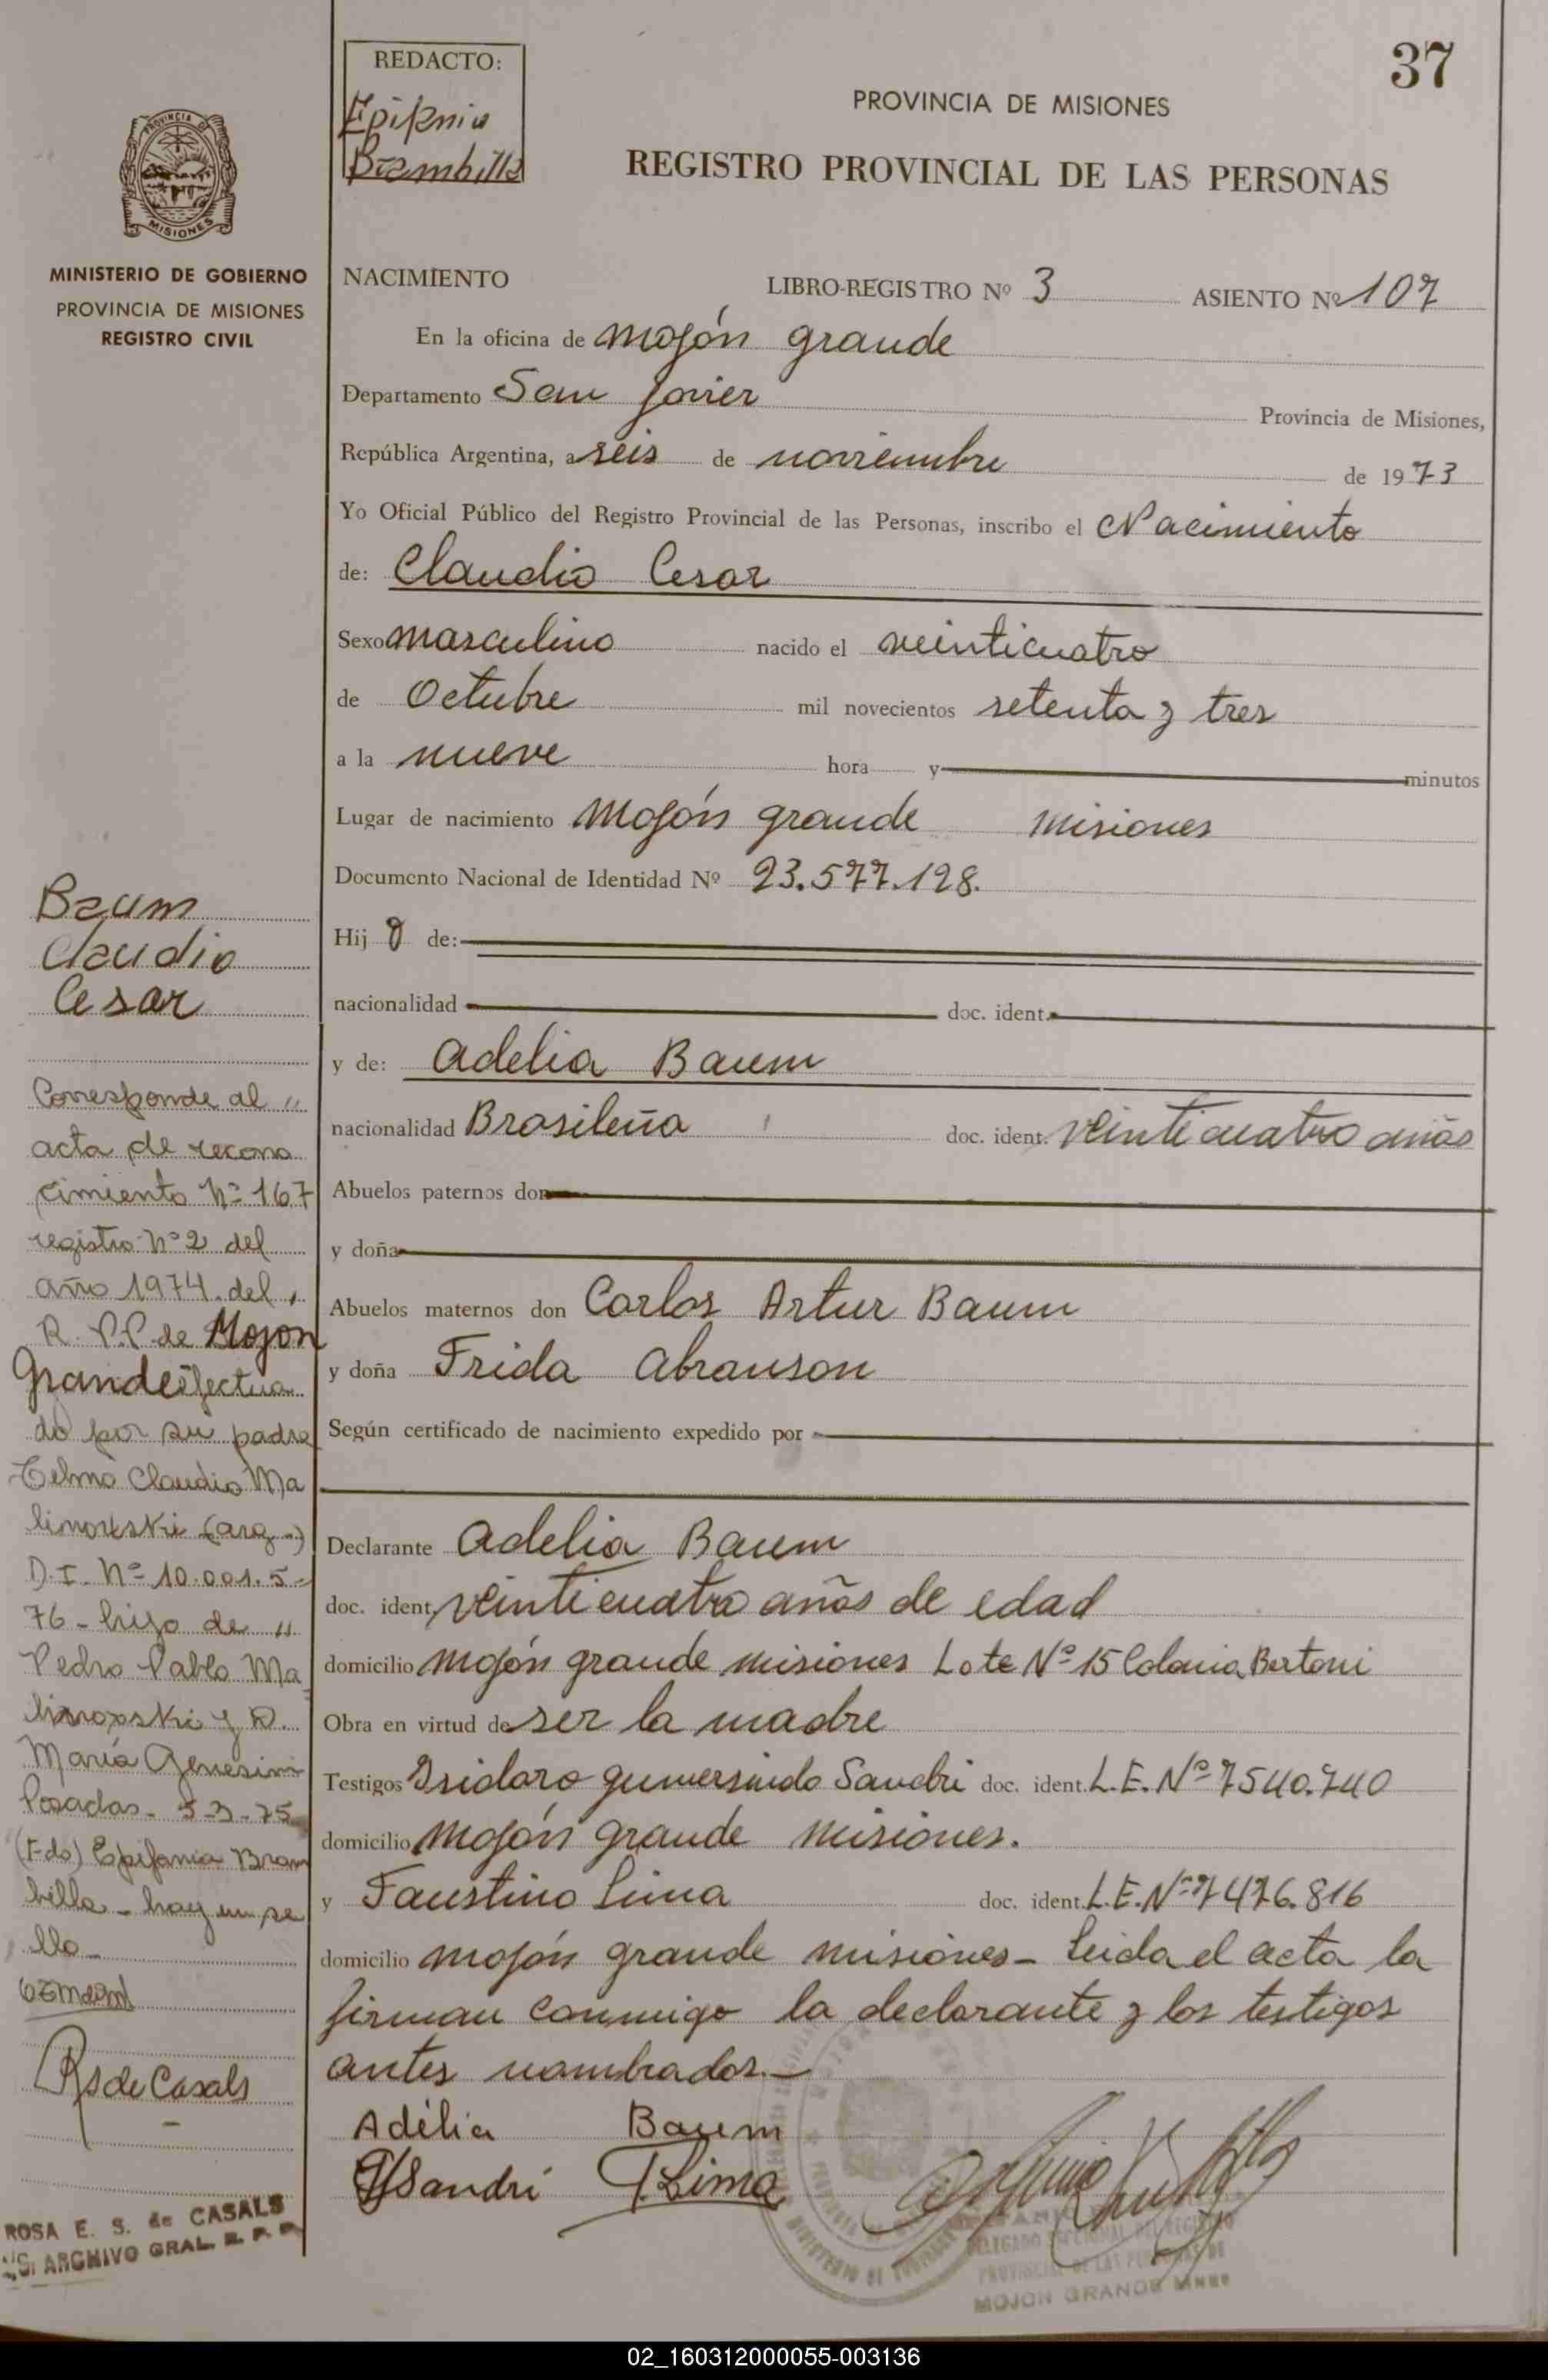 37
REDACTO:
Epifania
Brambilla
PROVINCIA DE MISIONES
REGISTRO PROVINCIAL DE LAS PERSONAS
PROVINCIA DE
MISIONES
MINISTERIO DE GOBIERNO
PROVINCIA DE MISIONES
REGISTRO CIVIL
NACIMIENTO LIBRO-REGISTRO Nº 3 ASIENTO Nº 107
En la oficina de Mojón grande
Departamento San Javier Provincia de Misiones,
República Argentina, a seis de noviembre de 1973
Yo Oficial Público del Registro Provincial de las Personas, inscribo el Nacimiento
de: Claudio Cesar
Sexo masculino nacido el veinticuatro
de Octubre mil novecientos setenta y tres
a la nueve hora y minutos
Lugar de nacimiento Mojón grande misiones
Documento Nacional de Identidad Nº 23.577.128.
Hij o de:
nacionalidad doc. ident.
y de: Adelia Baum
nacionalidad Brasileña doc. ident. veinticuatro años
Abuelos paternos don
y doña
Abuelos maternos don Carlos Artur Baum
y doña Frida Abranson
Según certificado de nacimiento expedido por
Declarante Adelia Baum
doc. ident. veinticuatro años de edad
domicilio Mojón grande misiones Lote Nº 15 Colonia Bertoni
Obra en virtud de ser la madre
Testigos Isidoro gumersindo Sandri doc. ident. L.E. Nº 7540.740
domicilio Mojón grande misiones.
y Faustino Lima doc. ident. L.E. Nº 7476.816
domicilio mojón grande misiones - Leida el acta la
firman conmigo la declarante y los testigos
antes nombrados.-
Adélia Baum
GSandri FLima
DELEGADO SECCIONAL DEL REGISTRO
PROVINCIAL DE LAS PERSONAS DE
MOJON GRANDE
Baum
Claudio
Cesar
Corresponde al "
acta de recono
cimiento Nº 167
registro Nº 2 del
año 1974. del
R. P.P. de Mojon
Grande efectua
do por su padre
Telmo Claudio Ma
linowski (arg.)
D.I. Nº 10.001.5-
76 - hijo de "
Pedro Pablo Ma
linowski y D.
María Genesini
Posadas - 5-3-75
(Fdo) Epifania Bram
billa - hay un se
llo -
RsdeCasals
ROSA E. S. de CASALS
ARCHIVO GRAL. R. P. P.
02_160312000055-003136